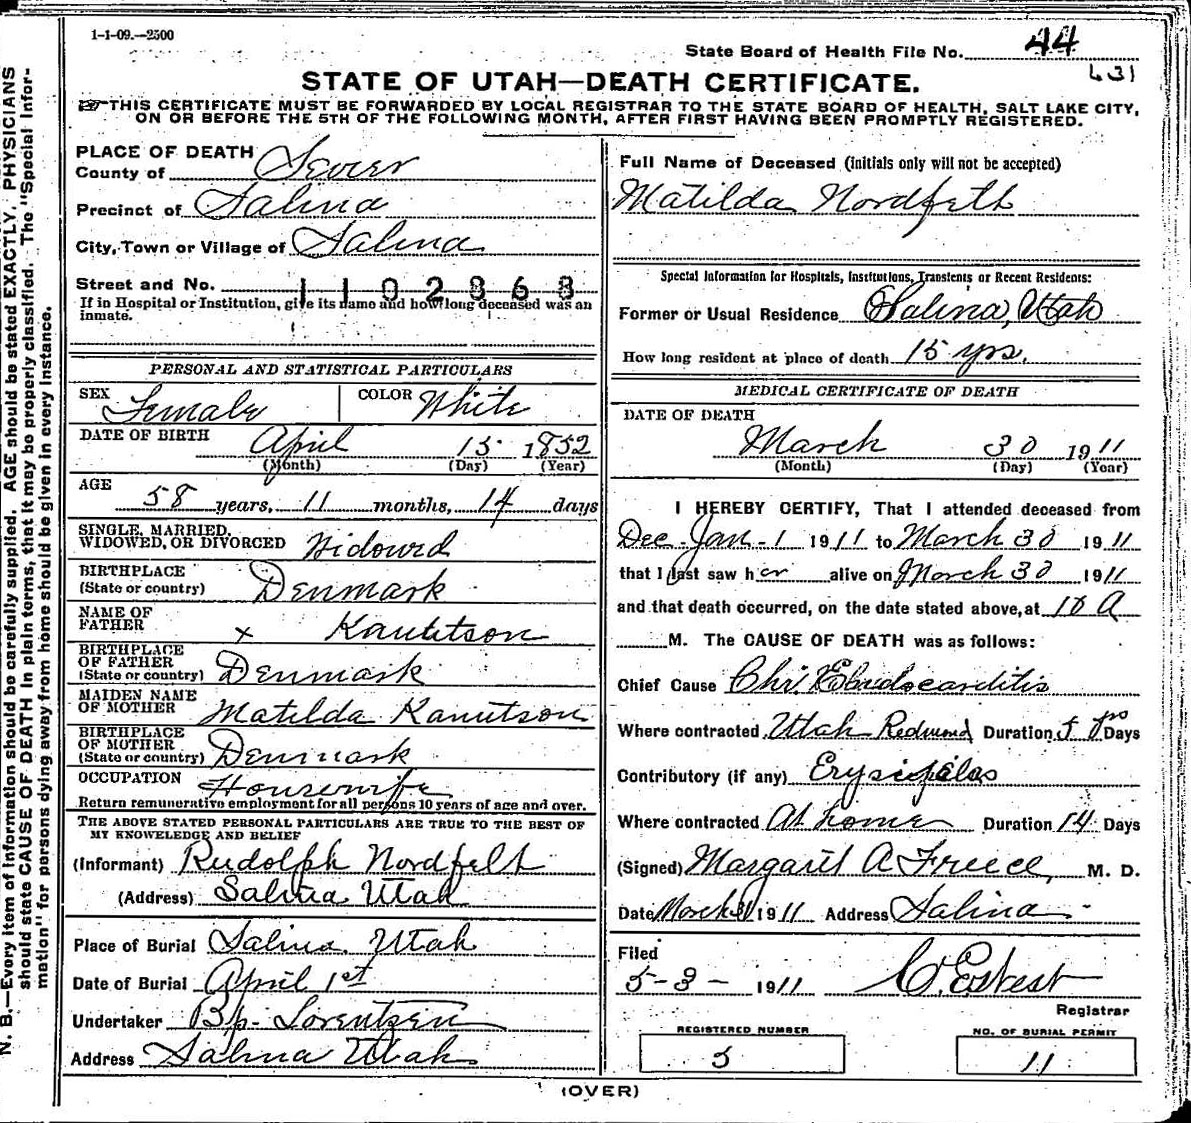 1-1-09.—2500
State Board of Health File No. 44
431
STATE OF UTAH—DEATH CERTIFICATE.
THIS CERTIFICATE MUST BE FORWARDED BY LOCAL REGISTRAR TO THE STATE BOARD OF HEALTH, SALT LAKE CITY,
ON OR BEFORE THE 5TH OF THE FOLLOWING MONTH, AFTER FIRST HAVING BEEN PROMPTLY REGISTERED.
N. B.—Every item of information should be carefully supplied. AGE should be stated EXACTLY, PHYSICIANS
should state CAUSE OF DEATH in plain terms, that it may be properly classified. The "Special Infor-
mation" for persons dying away from home should be given in every instance.
PLACE OF DEATH
County of Sevier
Precinct of Salina
City, Town or Village of Salina
Street and No. 1102868
If in Hospital or Institution, give its name and how long deceased was an
inmate.
PERSONAL AND STATISTICAL PARTICULARS
SEX Female COLOR White
DATE OF BIRTH April 15 1852
(Month) (Day) (Year)
AGE
58 years, 11 months, 14 days
SINGLE, MARRIED,
WIDOWED, OR DIVORCED Widowed
BIRTHPLACE
(State or country) Denmark
NAME OF
FATHER x Kanutson
BIRTHPLACE
OF FATHER
(State or country) Denmark
MAIDEN NAME
OF MOTHER Matilda Kanutson
BIRTHPLACE
OF MOTHER
(State or country) Denmark
OCCUPATION Housewife
Return remunerative employment for all persons 10 years of age and over.
THE ABOVE STATED PERSONAL PARTICULARS ARE TRUE TO THE BEST OF
MY KNOWELEDGE AND BELIEF
(Informant) Rudolph Nordfelt
(Address) Salina Utah
Place of Burial Salina Utah
Date of Burial April 1st
Undertaker Bp. Lorentzen
Address Salina Utah
Full Name of Deceased (initials only will not be accepted)
Matilda Nordfelth
Special Information for Hospitals, Institutions, Transients or Recent Residents:
Former or Usual Residence Salina, Utah
How long resident at place of death 15 yrs.
MEDICAL CERTIFICATE OF DEATH
DATE OF DEATH
March 30 1911
(Month) (Day) (Year)
I HEREBY CERTIFY, That I attended deceased from
Dec - Jan - 1 1911 to March 30 1911
that I last saw her alive on March 30 1911
and that death occurred, on the date stated above, at 10 A
M. The CAUSE OF DEATH was as follows:
Chief Cause Chr. Endocarditis
Where contracted Utah Redmond Duration 5 yrs Days
Contributory (if any) Erysipelas
Where contracted At home Duration 14 Days
(Signed) Margaret A Freece, M. D.
Date March 31 1911 Address Salina
Filed
5-3- 1911
Registrar
REGISTERED NUMBER
5
NO. OF BURIAL PERMIT
11
(OVER)